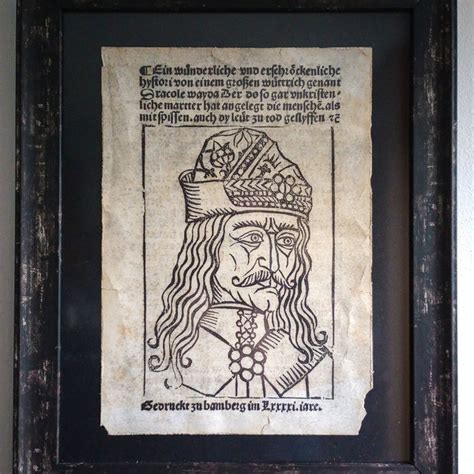 Ein wůnderliche vnd erschrȫckenliche
hystori von einem großen wüttrich genant
Dracole wayda Der do so gar vnkristen-
liche martter hat angelegt die menschē. als
mit spissen. auch dy leüt zu tod geslyffen ⁊c̄
Gedruckt zu bamberg im Lxxxxi. iare.